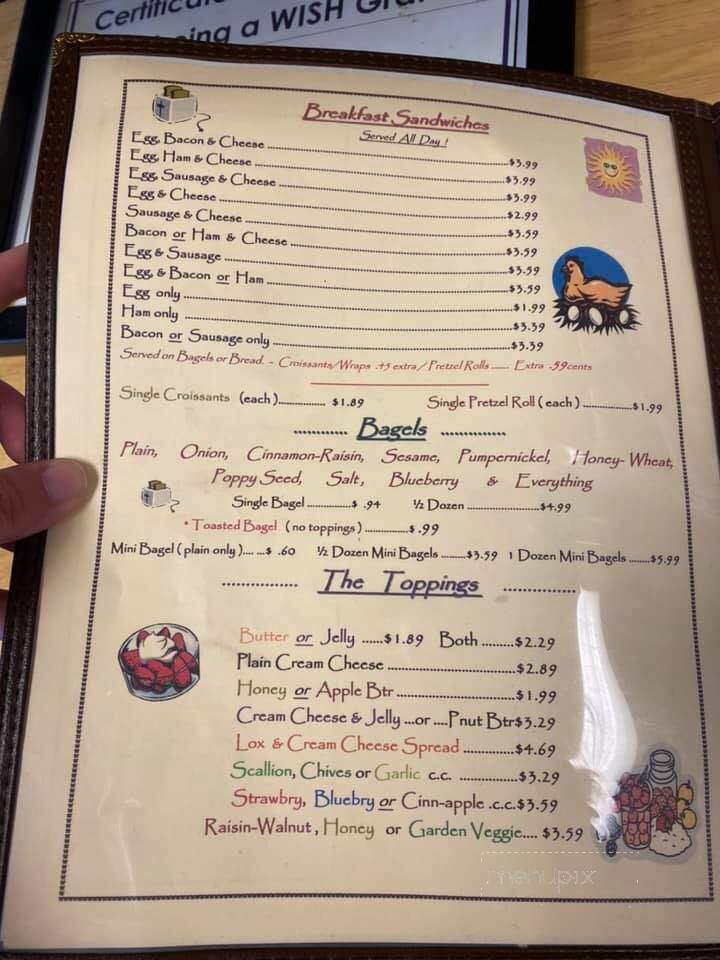 Certificat
ing a WISH Gra
Breakfast Sandwiches
Served All Day !
Egg, Bacon & Cheese ..... $3.99
Egg, Ham & Cheese ..... $3.99
Egg, Sausage & Cheese ..... $3.99
Egg & Cheese ..... $2.99
Sausage & Cheese ..... $3.59
Bacon or Ham & Cheese ..... $3.59
Egg & Sausage ..... $3.59
Egg, & Bacon or Ham ..... $3.59
Egg only ..... $1.99
Ham only ..... $3.59
Bacon or Sausage only ..... $3.59
Served on Bagels or Bread. - Croissants/Wraps .45 extra / Pretzel Rolls ...... Extra .59cents
Single Croissants (each)................ $1.89 Single Pretzel Roll ( each ) ................$1.99
............ Bagels ..............
Plain, Onion, Cinnamon-Raisin, Sesame, Pumpernickel, Honey- Wheat,
Poppy Seed, Salt, Blueberry & Everything
Single Bagel ................$ .94 ½ Dozen ................$4.99
* Toasted Bagel ( no toppings ) .............$ .99
Mini Bagel ( plain only ).... ...$ .60 ½ Dozen Mini Bagels .........$3.59 1 Dozen Mini Bagels .......$5.99
............... The Toppings ...............
Butter or Jelly ......$1.89 Both .........$2.29
Plain Cream Cheese ..... $2.89
Honey or Apple Btr ..... $1.99
Cream Cheese & Jelly ...or ....Pnut Btr$3.29
Lox & Cream Cheese Spread .............$4.69
Scallion, Chives or Garlic c.c. ...............$3.29
Strawbry, Bluebry or Cinn-apple .c.c.$3.59
Raisin-Walnut , Honey or Garden Veggie.... $3.59
menupix